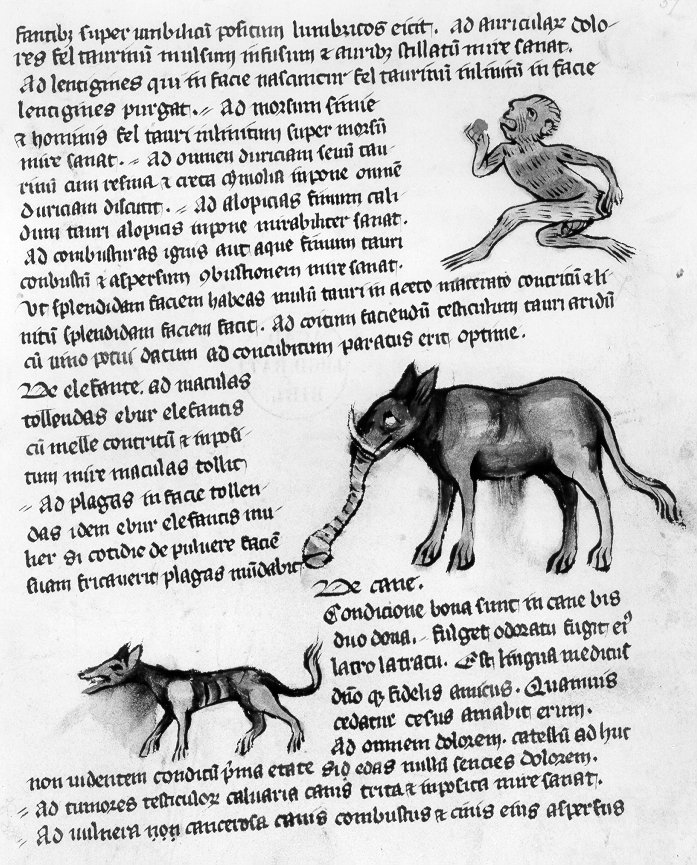 fantibꝫ super umbilicū positum lumbricos eicit. Ad auriculaꝝ dolo-
res fel taurinū mulsum infusum ⁊ auribꝫ stillatū mire sanat.
Ad lentigines qui in facie nascuntur fel taurinū inlinitū in facie
lentigines purgat. Ad morsum simie
⁊ hominis fel tauri inlinitum super morsū
mire sanat. Ad omnem duriciam seuū tau-
rinū cum resina ⁊ creta cimolia inpone omnē
duriciam discutit. Ad alopicias fimum cali
dum tauri alopicis inpone mirabiliter sanat.
Ad combusturas ignis aut aque fimum tauri
conbustū ⁊ aspersum ꝯbustionem mire sanat.
Ut splendidam faciem habeas tauri in aceto macerato contritū ⁊ li
nitū splendidam faciem facit. Ad coitum faciendū testiculum tauri aridū
cū uino potui datum ad concubitum paratus erit optime.
De elefante. ad maculas
tollendas ebur elefantis
cū melle contritū ⁊ inposi-
tum mire maculas tollit
Ad plagas in facie tollen-
das idem ebur elefantis mu-
lier si cotidie de puluere faciē
suam fricauerit plagas mūdabit
De cane.
Condicione bona sunt in cane bis
duo dona. fulget odoratu fugit eiꝰ
latro latratu. Est lingua medicus
dūo qꝫ fidelis amicus. Quamuis
cedatur cesus amabit erum.
Ad omnem dolorem. catellū ad huc
non uidentem conditū p̄ma etate si edas nullū sencies dolorem.
Ad tumores testiculoꝝ caluaria canis trita ⁊ inposita mire sanat.
Ad uulnera cancerosa canis combustus ⁊ cinis eius aspersus